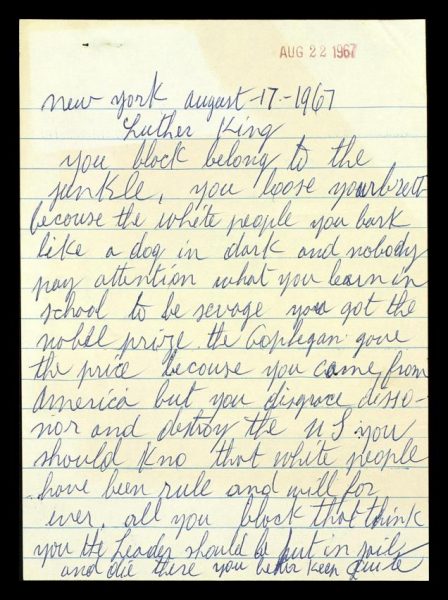 AUG 22 1967
new york august-17-1967
Luther King
you block belong to the
junkle, you loose your brett
becouse the white people you bark
like a dog in dark and nobody
pay attention what you learn in
school to be sevage you got the
nobel prize the gove
the price becouse you came from
America but you disgrace disso-
nor and destroy the US you
should kno that white people
have been rule and will for
ever, all you block that think
you the Leader should be put in jails
and die there you better keep quite